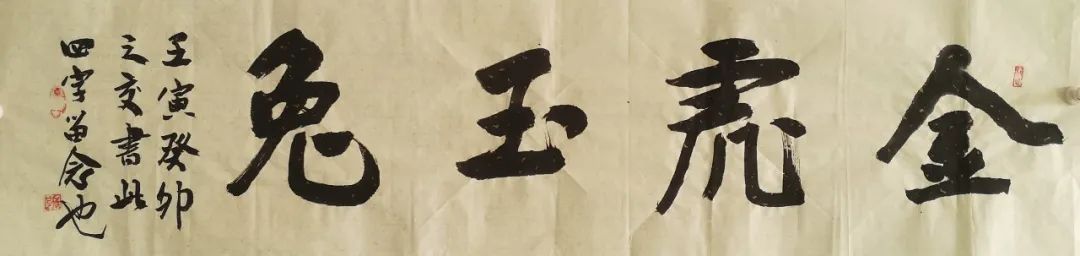 金虎玉兔
壬寅癸卯
之交書此
四字留念也